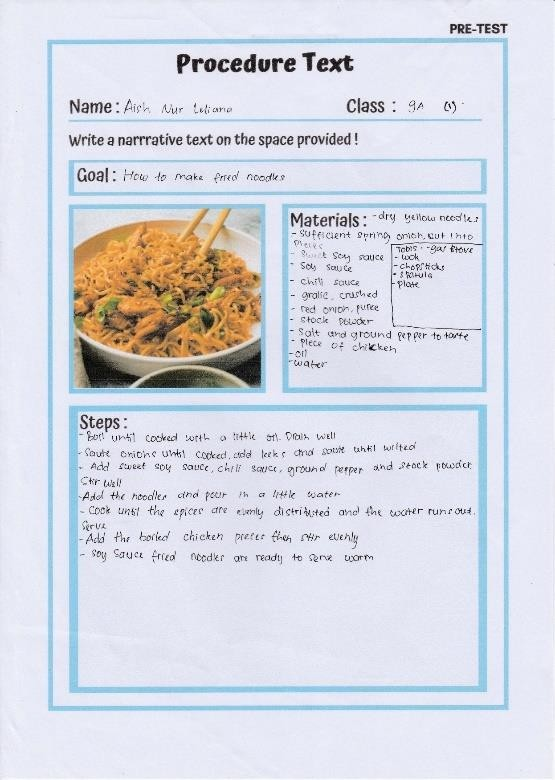 PRE-TEST
Procedure Text
Name : Aish Nur Leliana Class : 9A (1)
Write a narrrative text on the space provided !
Goal : How to make fried noodles
Materials : - dry yellow noodles
- Sufficient spring onion, cut into
pieces
- Sweet soy sauce
- Soy sauce
- chili sauce
- gralic, crushed
- red onion, puree
- stock powder
- Salt and ground pepper to taste
- piece of chicken
- oil
- water
Tools : - gas stove
- wok
- chopsticks
- spatula
- plate
Steps :
- Boil until cooked with a little oil. Drain well
- Saute onions until cooked, add leeks and saute until wilted
- Add sweet soy sauce, chili sauce, ground pepper and stock powder
Stir well
- Add the noodles and pour in a little water
- Cook until the spices are evenly distributed and the water runs out.
Serve
- Add the boiled chicken pieces then stir evenly
- Soy sauce fried noodles are ready to serve warm